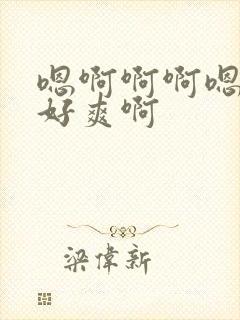 嗯啊啊啊嗯
好爽啊
梁偉新